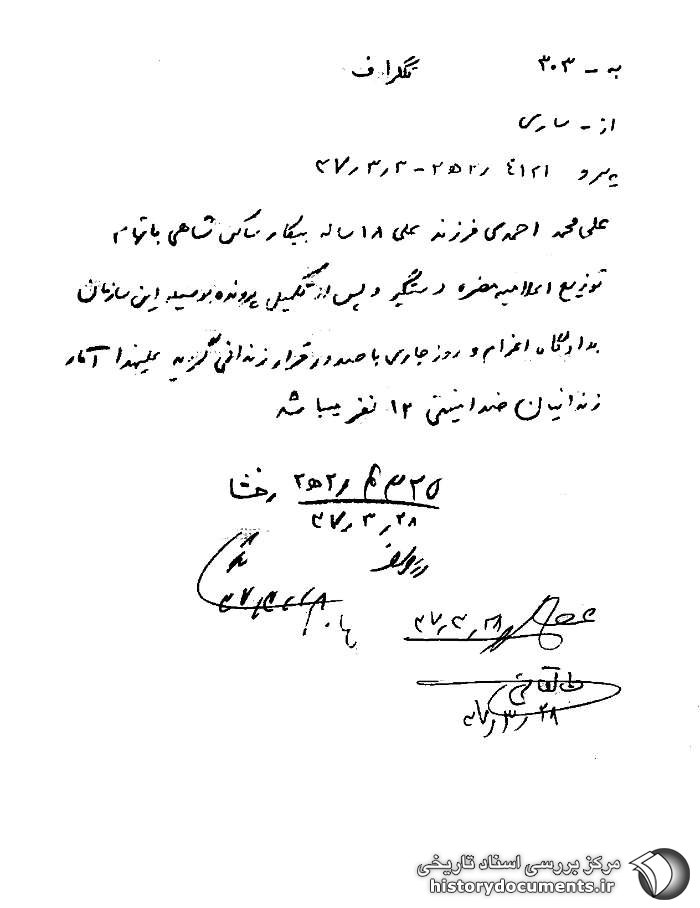 به - ۳۰۳ تلگراف
از - ساری
پیرو ۴۱۲۱ /۲ه۲ - ۳۷/۳/۲
علی محمد احمدی فرزند علی ۱۸ ساله بیکار ساکن شاهی باتهام
توزیع اعلامیه مضره دستگیر و پس از تکمیل پرونده بوسیله این سازمان
بدادگاه اعزام و روز جاری با صدور قرار زندانی گردید علیهذا آمار
زندانیان ضدامنیتی ۱۲ نفر میباشد
۲ه۲ رخشا
۳۷/۳/۲۸
۳۷/۳/۲۸
طالقانی
۳۷/۳/۲۸
مرکز بررسی اسناد تاریخی
historydocuments.ir